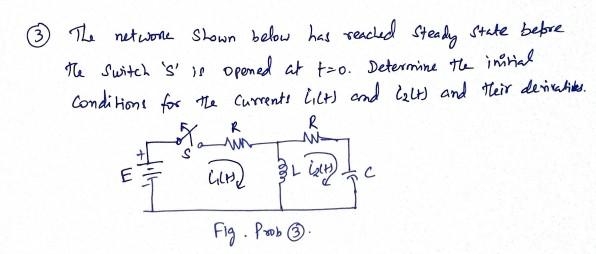 ③ The network shown below has reached steady state before
the switch 's' is opened at t=0. Determine the initial
conditions for the currents i₁(t) and i₂(t) and their derivatives.
R R
S
+
E i₁(t) L i₂(t) C
Fig. Prob ③.